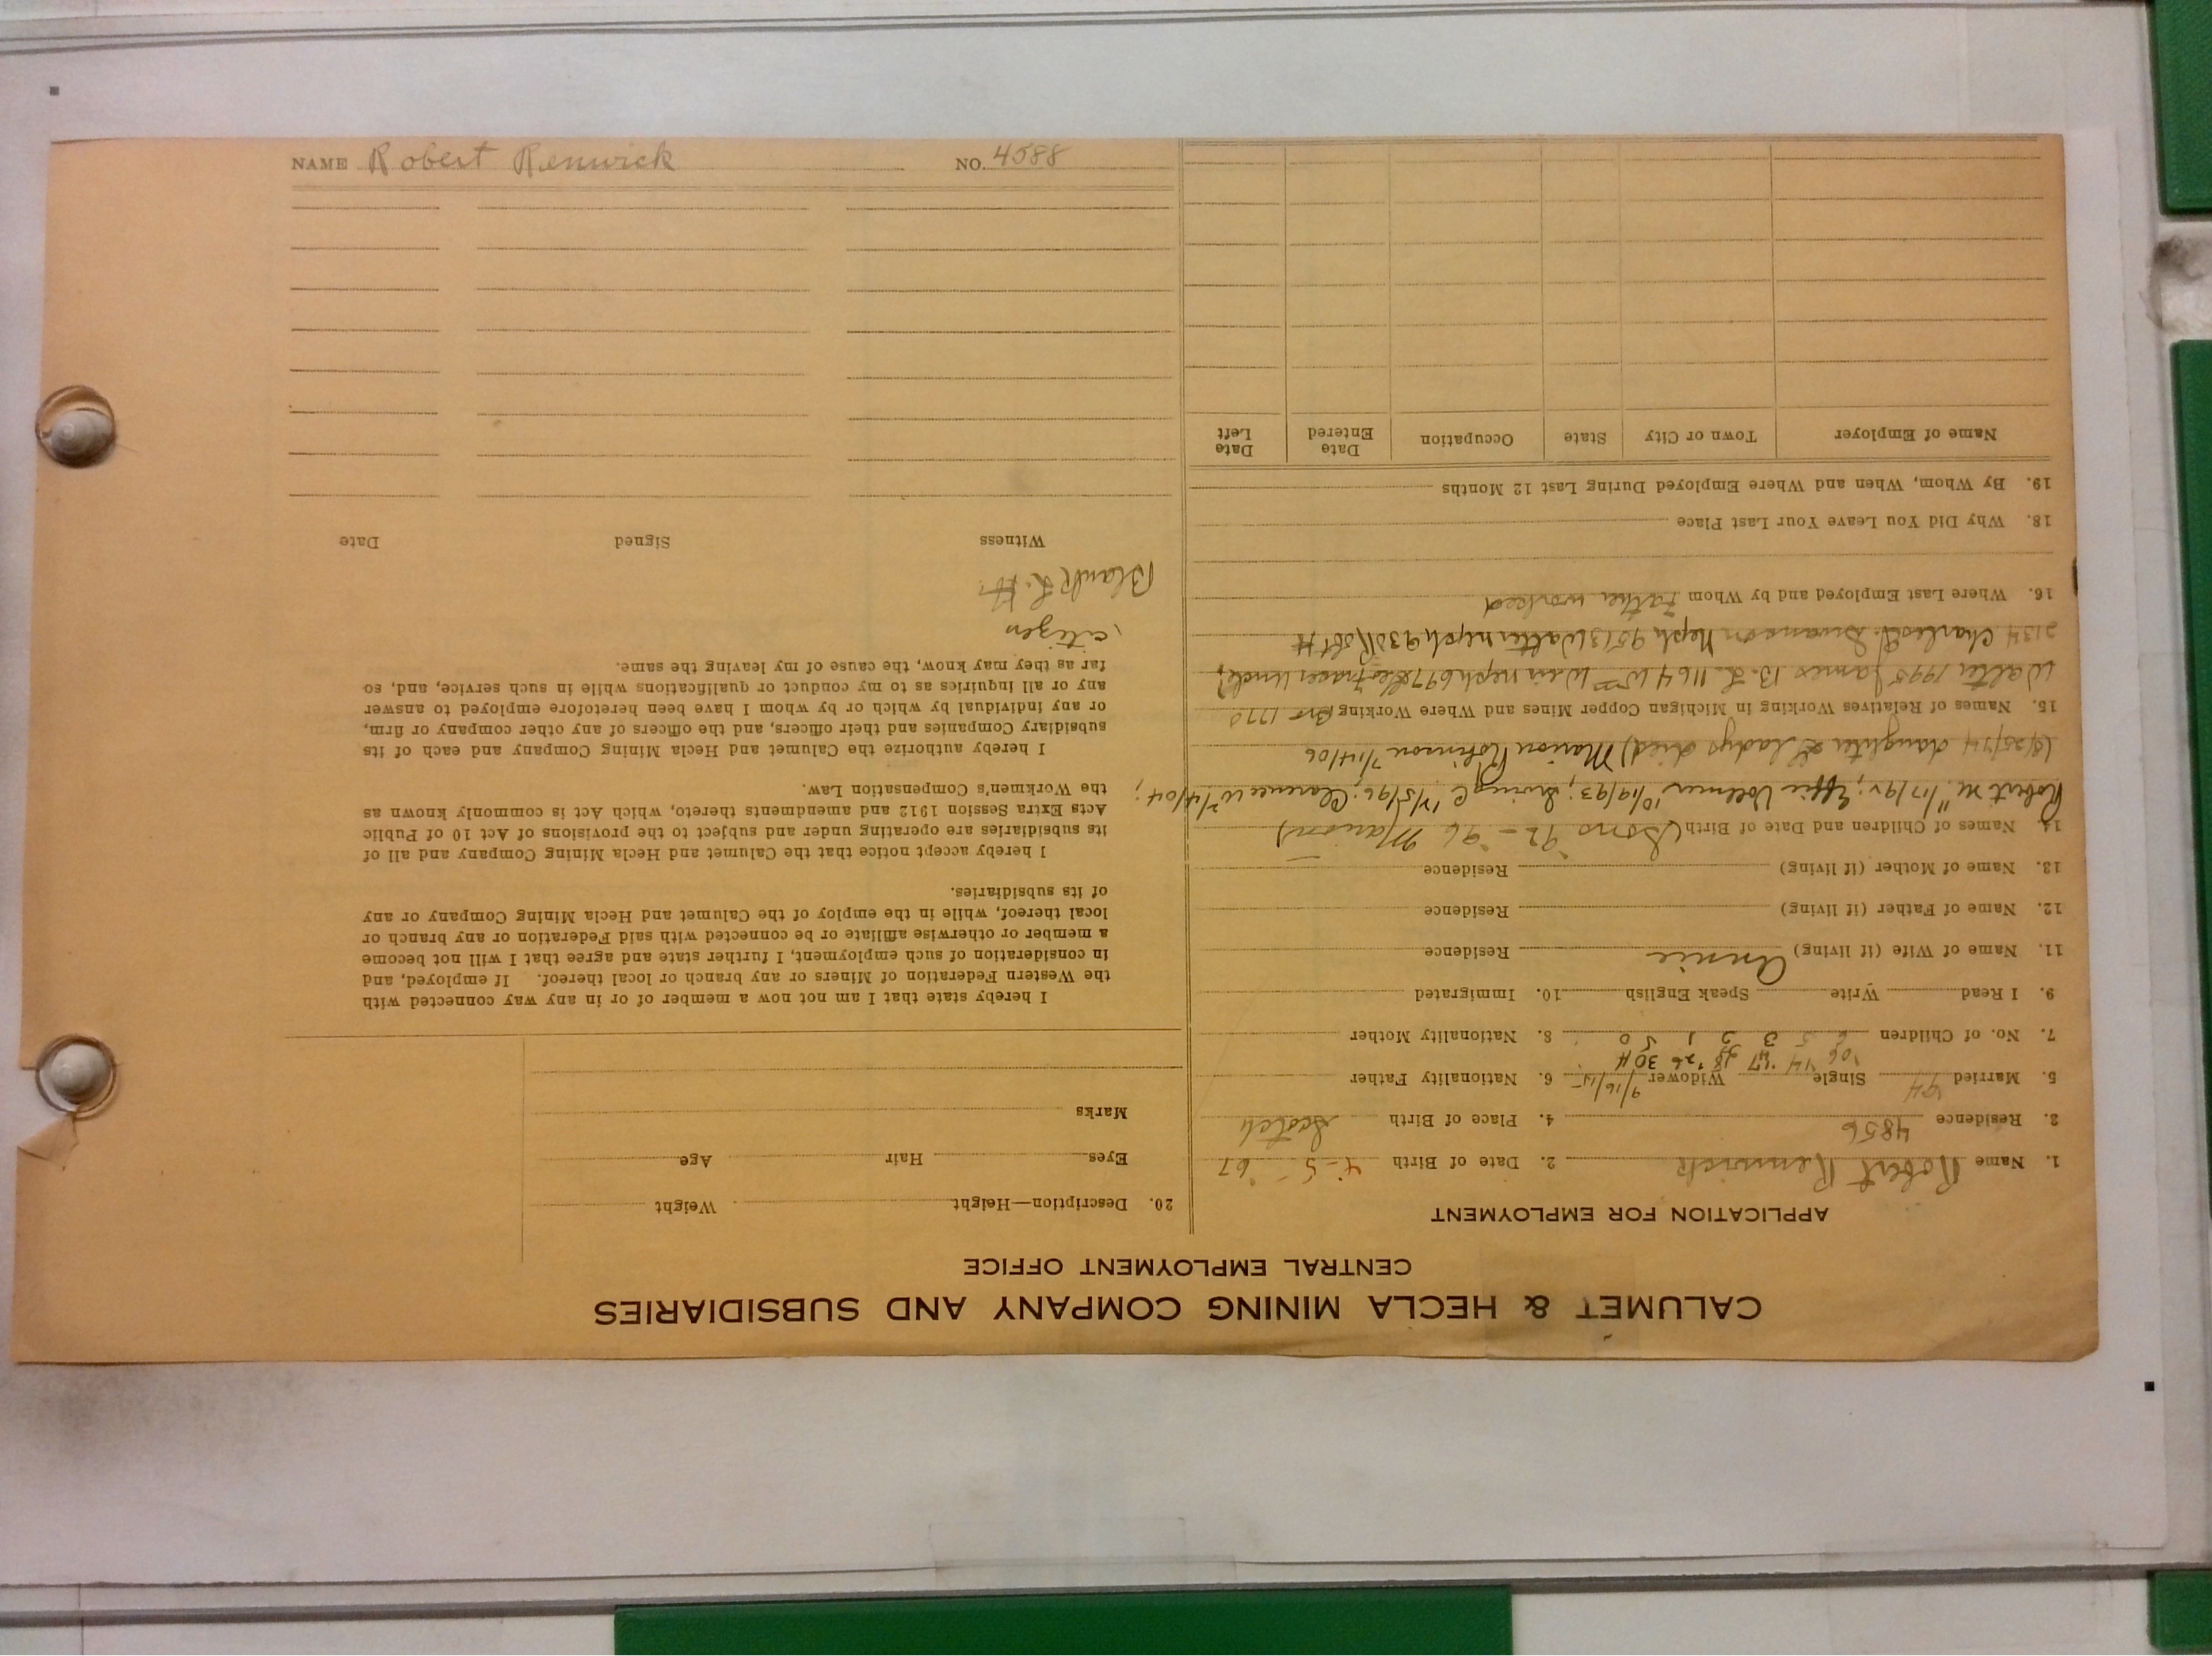 CALUMET & HECLA MINING COMPANY AND SUBSIDIARIES
CENTRAL EMPLOYMENT OFFICE
APPLICATION FOR EMPLOYMENT
1. Name Robert Renwick 2. Date of Birth 4-5-'67
3. Residence 4856 4. Place of Birth Scotch
5. Married '94 Single Widower 9/16/15 6. Nationality Father
'06 '14 '17 '18 '26 30 H
7. No. of Children 6 5 3 2 1 5 0 8. Nationality Mother
9. I Read Write Speak English 10. Immigrated
11. Name of Wife (if living) Annie Residence
12. Name of Father (if living) Residence
13. Name of Mother (if living) Residence
14. Names of Children and Date of Birth (Sons '92 - '96 Marion)
Robert M. 11/17/92; Effie Vollmer 10/19/93; Irving C 12/5/96; Clarence W 2/4/04;
(8/25/14 daughter Gladys died) Marion Robinson 7/14/06
15. Names of Relatives Working in Michigan Copper Mines and Where Working Bro 1770
Walter 1995 James B.L. 1164 Wm Weir neph 697 Uncle;
2134 Charles E. Swanson Neph 9513 Walter neph 930 Robt H
16. Where Last Employed and by Whom Father worked
18. Why Did You Leave Your Last Place
19. By Whom, When and Where Employed During Last 12 Months
Name of Employer Town or City State Occupation Date Entered Date Left
20. Description—Height Weight
Eyes Hair Age
Marks
I hereby state that I am not now a member of or in any way connected with
the Western Federation of Miners or any branch or local thereof. If employed, and
in consideration of such employment, I further state and agree that I will not become
a member or otherwise affiliate or be connected with said Federation or any branch or
local thereof, while in the employ of the Calumet and Hecla Mining Company or any
of its subsidiaries.
I hereby accept notice that the Calumet and Hecla Mining Company and all of
its subsidiaries are operating under and subject to the provisions of Act 10 of Public
Acts Extra Session 1912 and amendments thereto, which Act is commonly known as
the Workmen's Compensation Law.
I hereby authorize the Calumet and Hecla Mining Company and each of its
subsidiary Companies and their officers, and the officers of any other company or firm,
or any individual by which or by whom I have been heretofore employed to answer
any or all inquiries as to my conduct or qualifications while in such service, and, so
far as they may know, the cause of my leaving the same.
citizen
Blank L. H.
Witness Signed Date
NAME Robert Renwick NO. 4588